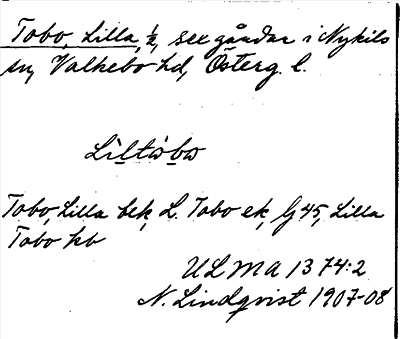 Tobo, Lilla, ½, sex gårdar i Nykils
sn, Valkebo hd, Österg. l.
Tobo, Lilla bek, L. Tobo ek, G 45, Lilla
Tobo kb
ULMA 1374:2
N. Lindqvist 1907-08